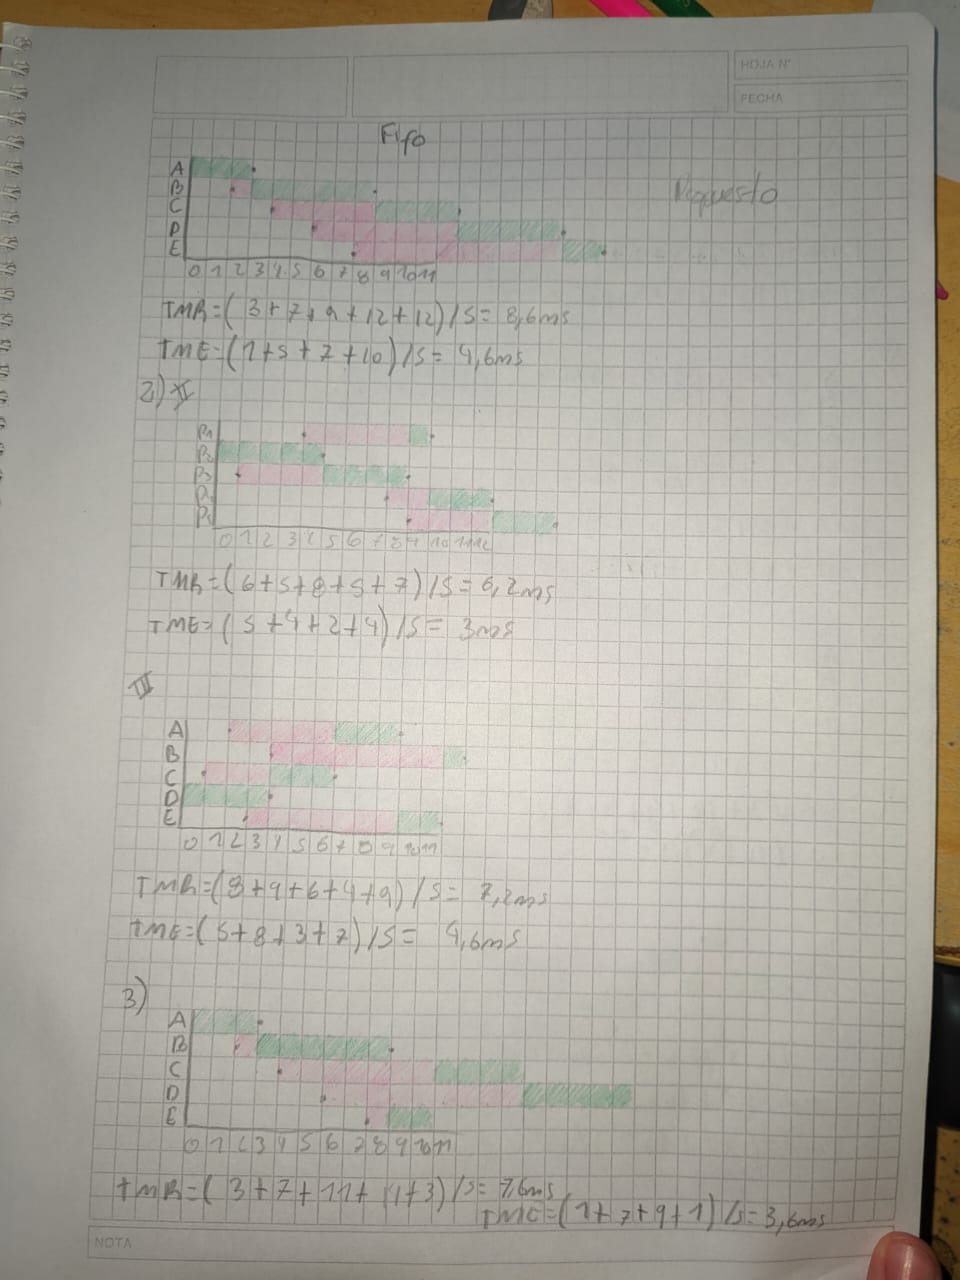 HOJA N°
FECHA
Fifo
A
B
C
D
E
0 1 2 3 4 5 6 7 8 9 10 11
TMR=(3+7+9+12+12)/5= 8,6ms
TME=(1+5+7+10)/5= 4,6ms
2) II
P1
P2
P3
0 1 2 3 4 5 6 7 8 9 10 11 12
TMR=(6+5+8+5+7)/5=6,2ms
TME=(5+4+2+4)/5= 3ms
III
A
B
C
D
E
0 1 2 3 4 5 6 7 8 9 10 11
TMR=(8+9+6+4+9)/5= 7,2ms
TME=(5+8+3+7)/5= 4,6ms
3)
A
B
C
D
E
0 1 2 3 4 5 6 7 8 9 10 11
TMR=(3+7+11+14+3)/5= 7,6ms
TME=(1+7+9+1)/5=3,6ms
NOTA